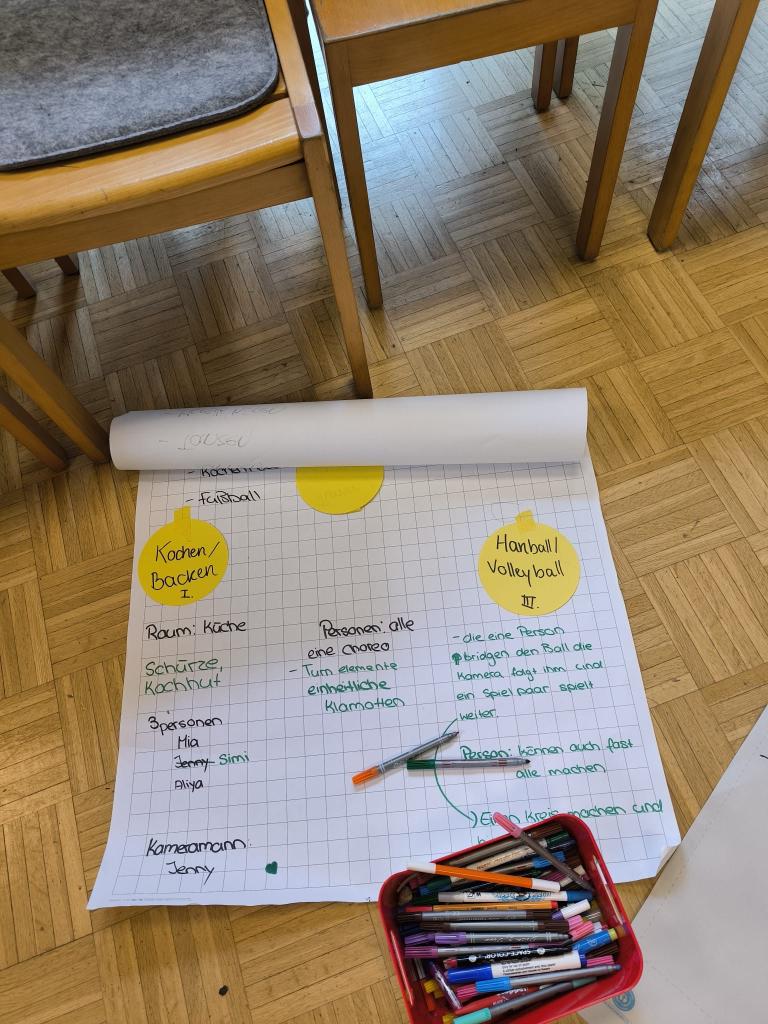 - Fußball
Kochen/
Backen
I.
Raum: Küche
Schürze,
Kochhut
3 personen
Mia
Jenny Simi
Aliya
Kameramann:
Jenny
Personen: alle
eine Choreo
- Turn elemente
einheitliche
Klamotten
Hanball/
Volleyball
III.
- die eine Person
bridgen den Ball die
Kamera folgt ihm und
ein Spiel paar spielt
weiter
Person: können auch fast
alle machen
Einen Kreis machen und
SPACE COLOR